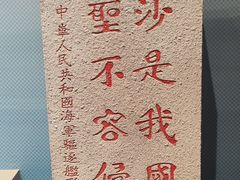 沙是我國
聖不容侵
中華人民共和國海軍驅逐艦